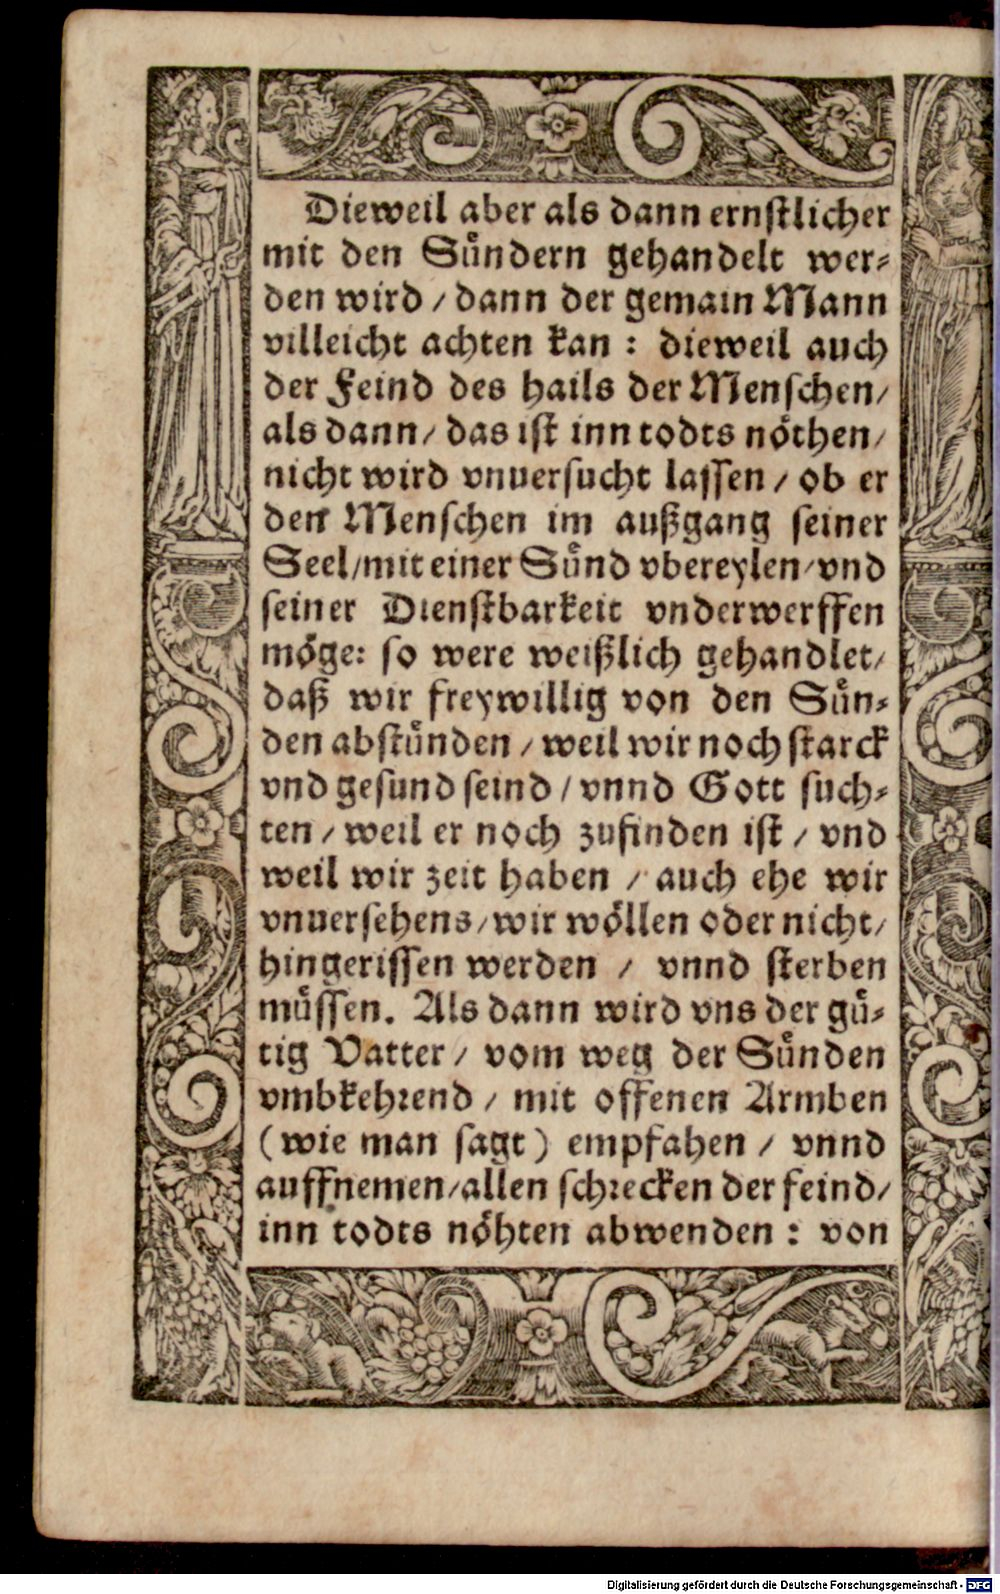 Dieweil aber als dann ernſtlicher
mit den Suͤndern gehandelt wer⸗
den wird / dann der gemain Mann
villeicht achten kan : dieweil auch
der Feind des hails der Menſchen/
als dann/ das iſt inn todts noͤthen/
nicht wird vnuerſucht laſſen / ob er
den Menſchen im außgang ſeiner
Seel/mit einer Suͤnd vbereylen/vnd
ſeiner Dienſtbarkeit vnderwerffen
moͤge: ſo were weißlich gehandlet/
daß wir freywillig von den Suͤn⸗
den abſtuͤnden / weil wir noch ſtarck
vnd geſund ſeind / vnnd Gott ſuch⸗
ten / weil er noch zufinden iſt / vnd
weil wir zeit haben / auch ehe wir
vnuerſehens/wir woͤllen oder nicht/
hingeriſſen werden / vnnd ſterben
muͤſſen. Als dann wird vns der guͤ⸗
tig Vatter / vom weg der Suͤnden
vmbkehꝛend / mit offenen Armben
(wie man ſagt) empfahen / vnnd
auffnemen/allen ſchꝛecken der feind/
inn todts noͤhten abwenden : von
Digitalisierung gefördert durch die Deutsche Forschungsgemeinschaft - DFG